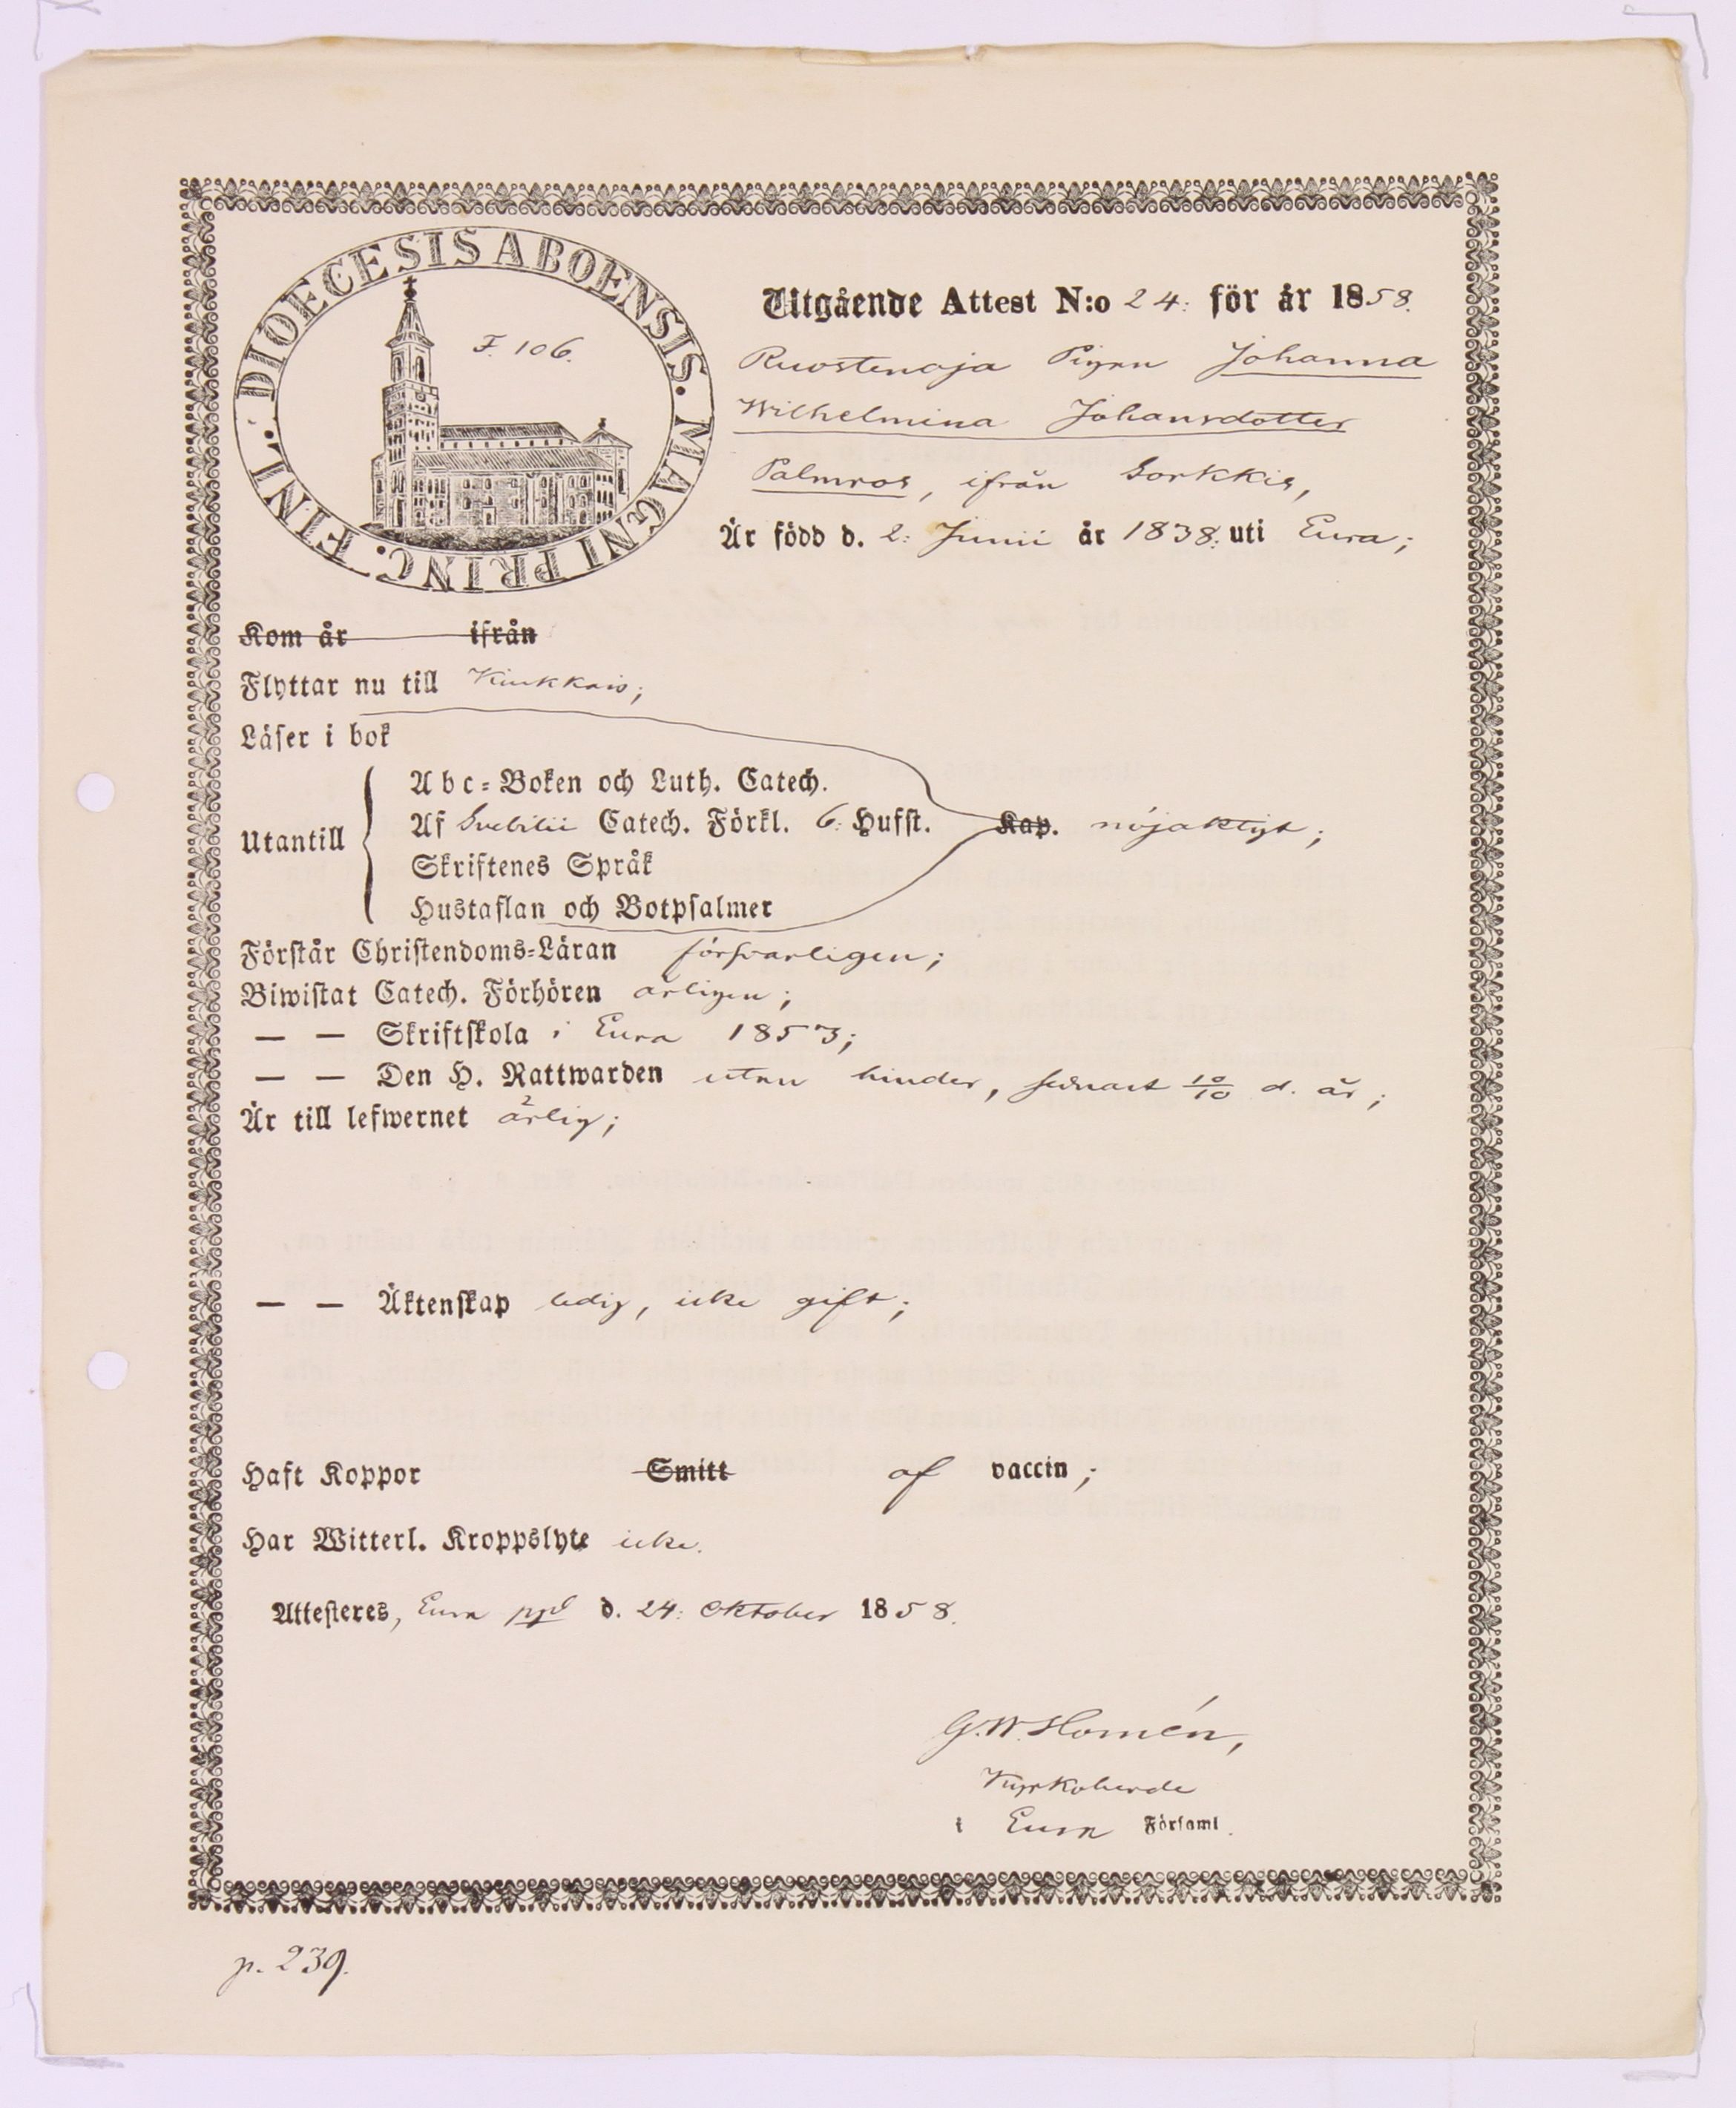 DIOECESIS ABOENSIS. MAGNI PRINC. FINL.
F. 106.
Utgående Attest N:o 24: för år 1858.
Ruostenoja Pigan Johanna
Wilhelmina Johansdotter
Palmros, ifrån Sorkkis,
Är född d. 2: Junii år 1838: uti Eura;
Kom år ifrån
Flyttar nu till Kiukkais;
Läser i bok
Abc-Boken och Luth. Catech.
Utantill Af Svebilii Catech. Förkl. 6: Hufst. Kap. nöjaktigt;
Skriftenes Språk
Hustaflan och Botpsalmer
Förstår Christendoms-Läran försvarligen;
Biwistat Catech. Förhören årligen;
— — Skriftskola i Eura 1853;
— — Den H. Nattwarden utan hinder, senast 10/10 d. år;
Är till lefwernet ärlig;
— — Äktenskap ledig, icke gift;
Haft Koppor Smitt af vaccin;
Har Witterl. Kroppslyte icke.
Attesteres, Eura ppl d. 24: Oktober 1858.
G. W. Homén,
Kyrkoherde
i Eura Församl.
p. 239.